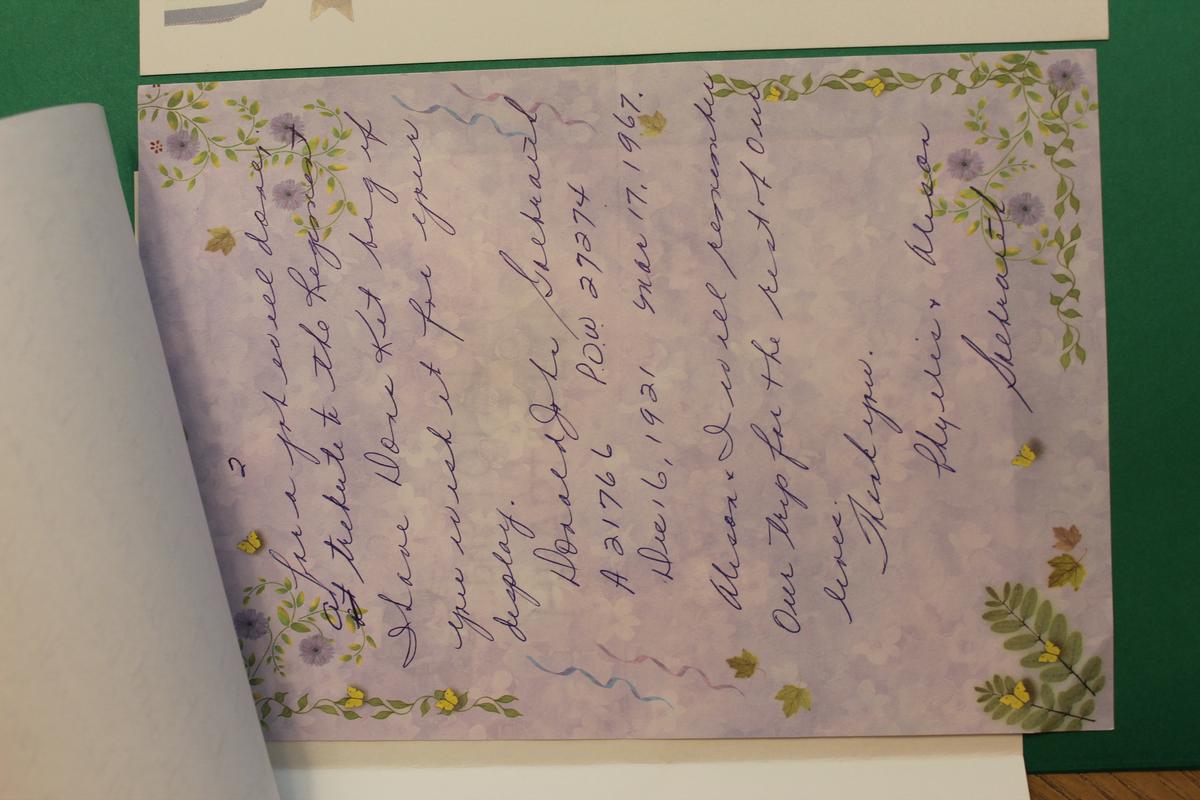 2
for a job well done.
A tribute to the Regiment
I have Dons Kit bag if
you wish it for your
display.
Donald John Shebrauth
A 21766 P.O.W 27274
Dec 16, 1921 Mar 17, 1967.
Alison & I will remember
Our trip for the rest of our
lives.
Thank you.
Phyllis & Alison